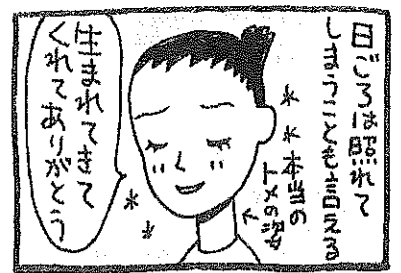 日ごろは照れて
しまうことも言える
本当の
トメの姿
生まれてきて
くれてありがとう